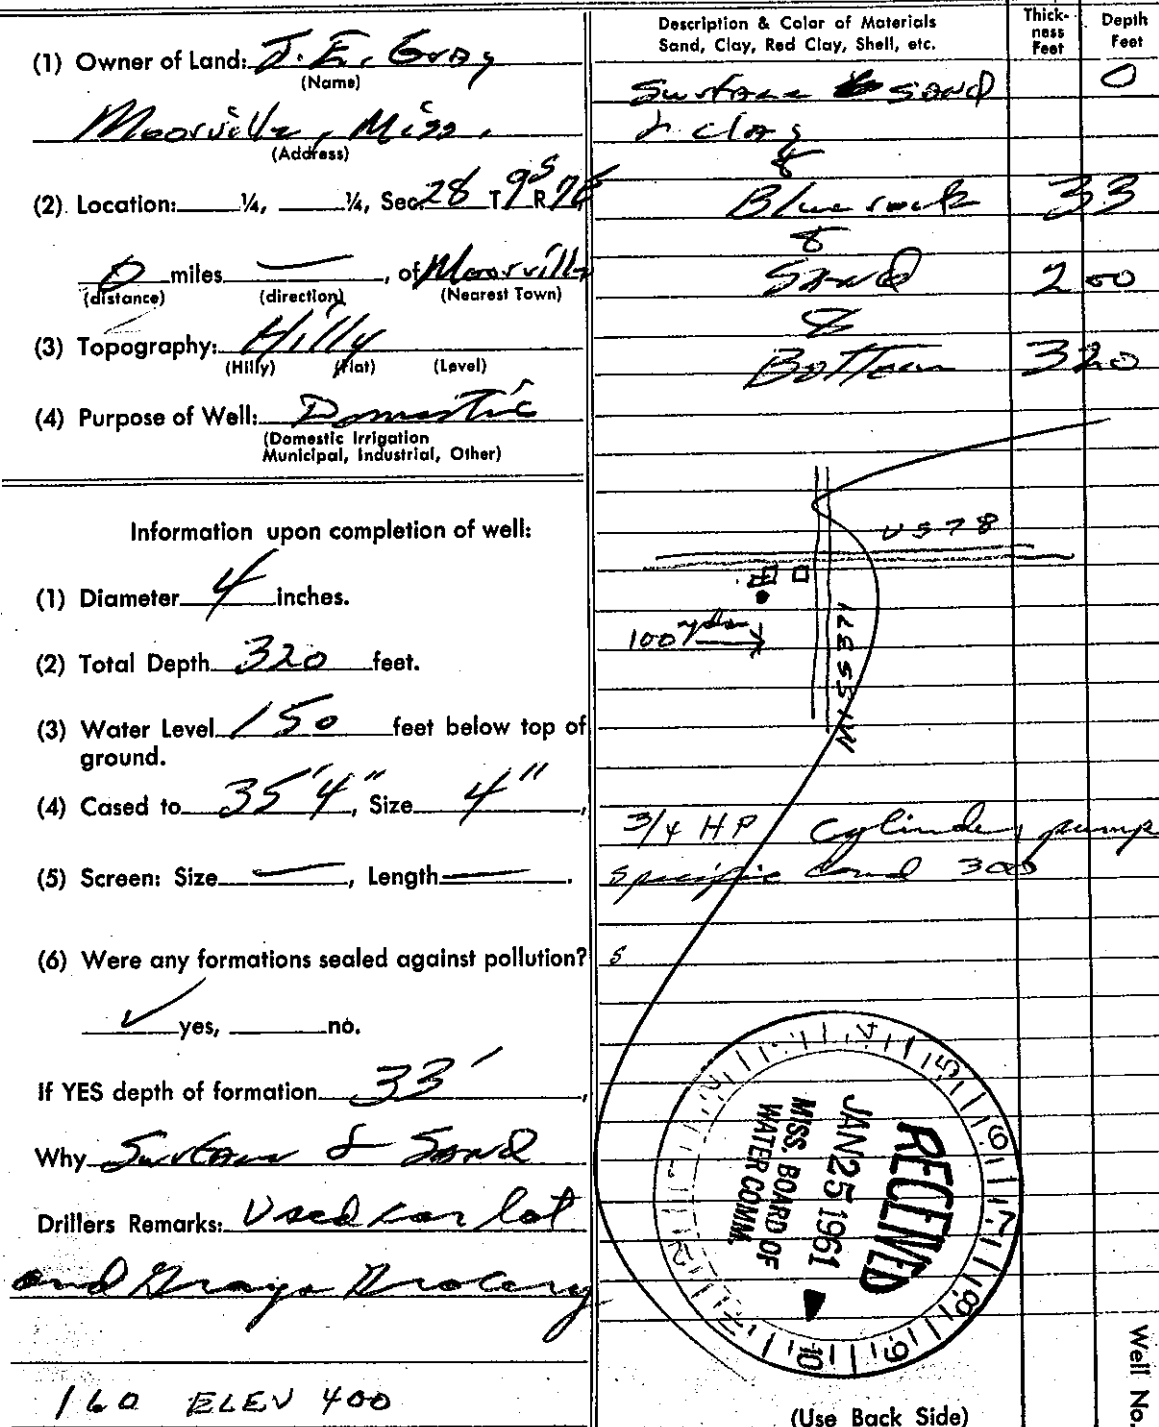 (1) Owner of Land: J. E. Gray
(Name)
Moorville, Miss.
(Address)
(2). Location: ¼, ¼, Sec. 28 T 9S R 7E
0 miles — , of Moorville
(distance) (direction) (Nearest Town)
(3) Topography: Hilly
(Hilly) (Flat) (Level)
(4) Purpose of Well: Domestic
(Domestic Irrigation
Municipal, Industrial, Other)
Information upon completion of well:
(1) Diameter 4 inches.
(2) Total Depth 320 feet.
(3) Water Level 150 feet below top of
ground.
(4) Cased to 35'4", Size 4",
(5) Screen: Size — , Length — .
(6) Were any formations sealed against pollution?
✓ yes, no.
If YES depth of formation 33',
Why Surface & Sand
Drillers Remarks: Used car lot
and Grays Grocery
160 ELEV 400
Description & Color of Materials
Sand, Clay, Red Clay, Shell, etc.
Thick-
ness
Feet
Depth
Feet
Surface sand 0
& clay
&
Blue rock 33
&
Sand 200
&
Bottom 320
US 78
MISS 371
100 yds
3/4 HP Cylinder pump
Specific Cond 300
s
RECEIVED
JAN 25 1961
MISS. BOARD OF
WATER COMM.
1 2 3 4 5 6 7 8 9 10 11 12
Well No.
(Use Back Side)